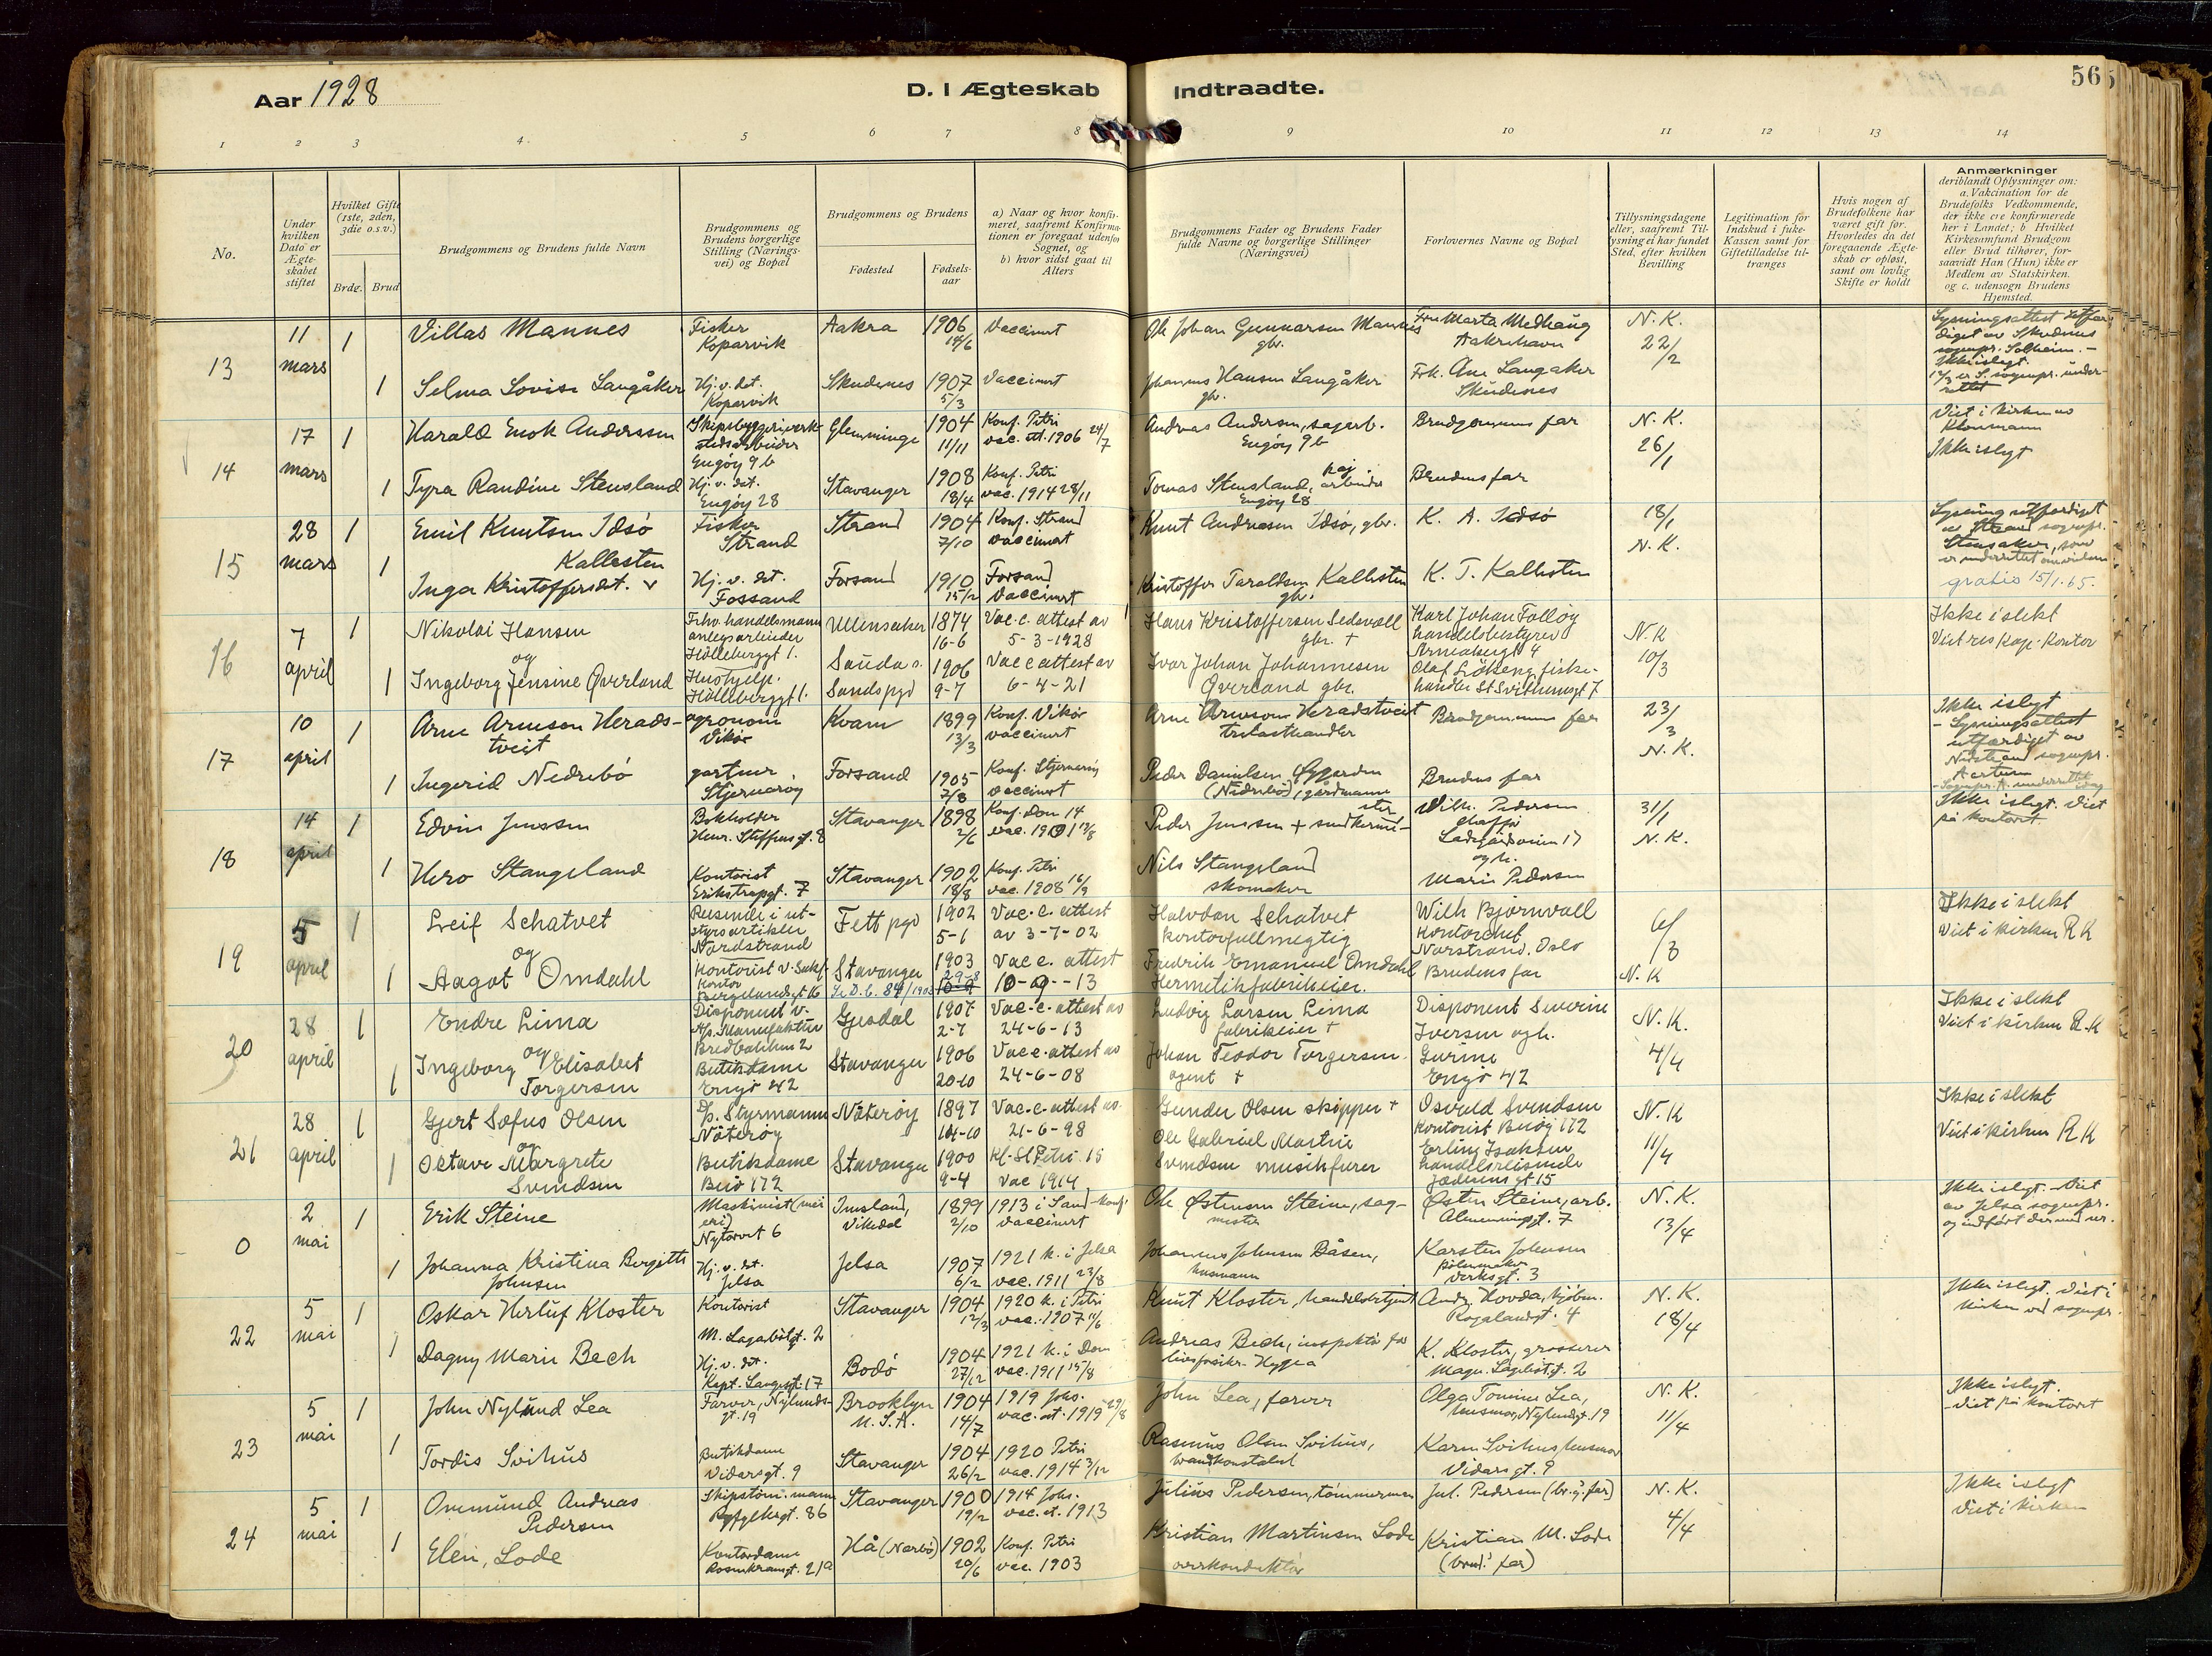 Aar 1928
D. I Ægteskab Indtraadte.
565
1 2 3 4 5 6 7 8 9 10 11 12 13 14
No.
Under hvilken Dato er Ægteskabet stiftet
Hvilket Gifte (1ste, 2den, 3die o.s.v.)
Brdg. Brud
Brudgommens og Brudens fulde Navn
Brudgommens og Brudens borgerlige Stilling (Næringsvei) og Bopæl
Brudgommens og Brudens
Fødested
Fødselsaar
a) Naar og hvor konfirmeret, saafremt Konfirmationen er foregaat udenfor Sognet, og
b) hvor sidst gaat til Alters
Brudgommens Fader og Brudens Fader fulde Navne og borgerlige Stillinger (Næringsvei)
Forlovernes Navne og Bopæl
Tillysningsdagene eller, saafremt Tillysning ei har fundet Sted, efter hvilken Bevilling
Legitimation for Indskud i fuke-Kassen samt for Giftetilladelse tiltrænges
Hvis nogen af Brudefolkene har været gift før. Hvorledes da det foregaaende Ægteskab er opløst, samt om lovlig Skifte er holdt
Anmærkninger
deriblandt Oplysninger om: a. Vakcination for de Brudefolks Vedkommende, der ikke ere konfirmerede her i Landet; b Hvilket Kirkesamfund Brudgom eller Brud tilhører, forsaavidt Han (Hun) ikke er Medlem av Statskirken. og c. udensogn Brudens Hjemsted.
13
11 mars
1 Villas Mannes
Fisker Koparvik
Aakra
1906 14/6
Vaccinert
Ole Johan Gunnarsen Mannes gbr.
Fru Marta Medhaug Aakrehavn
N. K. 22/2
Lysningsattest utfærdiget av Skudenes sognepr. Solheim. - Ikke i slegt.
1 Selma Lovise Langåker
Hj. v. det. Koparvik
Skudenes
1907 5/3
Vaccinert
Johannes Hansen Langåker gbr.
Frk. Ane Langaker Skudenes
14
17 mars
1 Harald Enok Anderssen
Skipsbyggeriverkstedsarbeider Engøy 9 b
Glemminge
1904 11/11
Konf. Petri vac. att. 1906 24/7
Andreas Andersen, sagarb. Engøy 9 b
Brudgommens far
N. K. 26/1
Viet i kirken av Klonmann
Ikke i slegt
1 Tyra Randine Stensland
Hj. v. det. Engøy 28
Stavanger
1908 18/4
Konf. Petri vac. 1914 28/11
Tomas Stensland, kajarbeider Engøy 28
Brudens far
15
28 mars
1 Emil Knutsen Idsø
Fisker Strand
Strand
1904 7/10
Konf. Strand vaccinert
Knut Andreasen Idsø, gbr.
K. A. Idsø
18/1 N. K.
gratis 15/1.65.
1 Inga Kristoffersdet. Kallesten
Hj. v. det. Fossand
Forsand
1910 15/2
Forsand Vaccinert
Kristoffer Taraldsen Kallesten gbr.
K. T. Kallesten
16
7 april
1 Nikolai Hansen
og
Frhv. handelsmann anlegsarbeider Hølleberggt 1.
Ullensaker
1874 16-6
Vac. c. attest av 5-3-1928
Hans Kristoffersen Sedevoll gbr. +
Karl Johan Falløy handelsbestyrer Arneabergt 4
N. K 10/3
Ikke i slekt
Viet res kap. kontor
1 Ingeborg Jensine Øverland
Hushjelp. Hølleberggt 1.
Sauda s. Sands pgd
1906 9-7
Vac c attest av 6-4-21
Ivar Johan Johannesen Øverland gbr.
Olaf Løkeng, fiskehandler St Svithunsgt 7
17
10 april
1 Arne Arneson Heradstveit
agronom Vikør
Kvam
1899 13/3
Konf. Vikør vaccinert
Arne Arneson Heradstveit trelasthandler
Brudgommens far
23/3 N. K.
Ikke i slegt
- Lysningsattest utfærdiget av Nedstrand sognepr.
1 Ingerid Nedrebø
gartner Stjernerøy
Forsand
1905 7/8
Konf. Stjernerøy vaccinert
Peder Danielsen Øygarden (Nedrebø), gårdmann
Brudens far
18
14 april
1 Edvin Jenssen
Bokholder Henr. Steffens gt. 8
Stavanger
1898 2/6
Konf. Dom 14 vac. 1901 12/8
Peder Jenssen + snedkermester
Vilh. Pedersen chaffør Ladegårdsveien 17 og h. Marie Pedersen
31/1 N. K.
Ikke i slegt. Viet på kontoret.
1 Hero Stangeland
Kontorist Erikstrapgt. 7
Stavanger
1902 18/8
Konf. Petri vac. 1908 16/9
Nils Stangeland skomaker
19
5 april
1 Leif Schatvet
og
Reisende i utstyrsartikler Nordstrand
Fett pgd
1902 5-1
Vac. c. attest av 3-7-02
Halvdan Schatvet kontorfullmegtig
Wilh Bjørnvall Kontorchef Norstrand, Oslo
6/3 N. K
Ikke i slekt
Viet i kirken R K
1 Aagot Omdahl
Kontorist v. Sakf. kontor Bergelandsgt 16
Stavanger
Se D. b. 84/1903
1903 29-8 10-9
Vac c. attest 10-9--13
Fredrik Emanuel Omdahl Hermetikfabrikeier.
Brudens far
20
28 april
1 Endre Lima
og
Disponent v. A/s. Manufaktur Bredbakken 2
Gjesdal
1907 2-7
Vac. c. attest av 24-6-13
Ludvig Larsen Lima fabrikeier +
Disponent Severine Iversen og h. Gurine Engø 42
N. K. 4/4
Ikke i slekt
Viet i kirken R. K
1 Ingeborg Elisabet Torgersen
Butikdame Engø 42
Stavanger
1906 20-10
Vac c. attest av 24-6-08
Johan Teodor Torgersen. agent +
21
28 april
1 Gjert Sofus Olsen
og
D/s. Styrmann Nøterøy
Nøterøy
1897 14-10
Vac. c. attest av. 21-6-98
Gunder Olsen skipper +
Osvald Svendsen Kontorist Buøy 172
N. K 11/4
Ikke i slekt
Viet i kirken R K
1 Octave Margrete Svendsen
Butikdame Buø 172
Stavanger
1900 9-4
Kf. St Petri 15 Vac 1914
Ole Gabriel Martin Svendsen musikfører
Erling Isaksen handelsreisende Jæderens gt 15
0
2 mai
1 Erik Steine
Maskinist (meieri) Nytorvet 6
Imsland, Vikedal
1899 2/10
1913 i Sand - konf. vaccinert
Ole Østensen Steine, sagmester
Østen Steine, arb. Almenningt. 7
N. K. 13/4
Ikke i slegt. Viet av Jelsa sognepr. og indført der med nr.
1 Johanna Kristina Bergitte Johnsen
Hj. v. det. Jelsa
Jelsa
1907 6/2
1921 k. i Jelsa vac. 1911 23/8
Johannes Johnsen Båsen, husmann
Karsten Johnsen pølsemaker Verksgt. 3
22
5 mai
1 Oskar Herluf Kloster
Kontorist M. Lagabøtgt. 2
Stavanger
1904 12/3
1920 k. i Petri vac. 1907 11/6
Knut Kloster, handelsbetjent
Andr. Hovda, kjøbm. Rogalandsgt. 4
N. K. 18/4
Ikke i slegt. Viet i kirken ved sognepr.
1 Dagny Marie Bech
Hj. v. det. Kapt. Langesgt. 17
Bodø
1904 27/12
1921 k. i Dom vac. 1911 15/8
Andreas Bech, inspektør for livsforsikr. Hygea
K. Kloster, grosserer Magn. Lagabøtgt. 2
23
5 mai
1 John Nylund Lea
Farver, Nylundsgt. 19
Brooklyn U. S. A.
1904 14/7
1919 Johs. vac. at. 1919 29/8
John Lea, farver
Olga Tomine Lea, husmor, Nylundsgt. 19
N. K. 11/4
Ikke i slegt.
- viet på kontoret
1 Tordis Svihus
Butikdame Vidarsgt. 9
Stavanger
1904 26/2
1920 Petri vac. 1914 3/12
Rasmus Olsen Svihus, brandkonstabel
Karen Svihus husmor Vidarsgt. 9
24
5 mai
1 Ommund Andreas Pedersen
Skipstøm.mann Ryfylkegt. 86
Stavanger
1900 19/2
1914 Johs. vac. at. 1913
Julius Pedersen, tømmermann
Jul. Pedersen (br.g. far)
N. K. 4/4
Ikke i slegt
Viet i kirken
1 Elen, Lode
Kontordame Rosenkransgt. 21a
Hå (Nærbø)
1902 20/6
Konf. Petri vac. 1903
Kristian Martinsen Lode overkonduktør
Kristian M. Lode (brud. far)